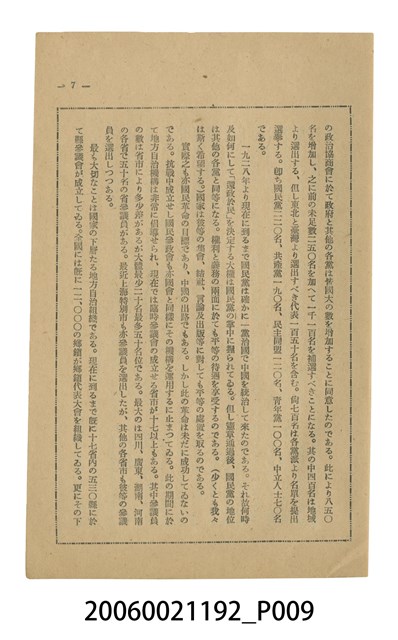 — 7 —
の政治協商會に於て政府と其他の各黨は帷國大の數を增加することに同意したのである。此により八五〇
名を增加し、之に前の未足數二五〇名を加へて一千一百名を補選すべきことになる。其の中四百名は地域
より選出する、但し東北と臺灣より選出すべき代表一百五十名を含む。尙七百名は各黨派より名單を提出
選擧する。卽ち國民黨二二〇名、共產黨一九〇名、民主同盟一二〇名、靑年黨一〇〇名、中立人士七〇名
である。
一九二八年より現在に到るまで國民黨は確かに一黨治國で中國を統治して來たのである。それ故何時
及如何にして「還政於民」を決定する大權は國民黨の掌中に握られてゐる。但し憲草通過後、國民黨の地位
は其他の各黨と同等になる。權利と義務の兩面に於ても平等の待遇を享受するのである。（少くとも我々
は斯く希望する。）國家は彼等の集會、結社、言論及出版等に對しても平等の處置を取るのである。
實際之も亦國民革命の目標であり、中國の出路でもある。しかし此の革命は未だに成功してゐないの
である。抗戰中成立せし國民參政會も亦國會と同樣にその機構を運用するに止まつてゐる。此の期間に於
て地方自治機構は非常に倡導せられ、現在では臨時參議會の成立せる省市が十七以上もある。其中參議員
の數は省市により多少差があるが大體最少二十名最多五十名位である。最大のは四川、廣東、湖南、河南
の各省で五十名の省參議員がある。最近上海特別市も亦參議員を選出したが、其他の各省市も彼等の參議
員を選出しつつある。
最も大切なことは國家の下層たる地方自治組織である。現在に到るまで旣に十七省內の五三〇縣に於
て縣參議會が成立してゐる。全國には旣に一二、〇〇〇の鄕鎭が鄕鎭代表大會を組織してゐる。更にその下
20060021192_P009